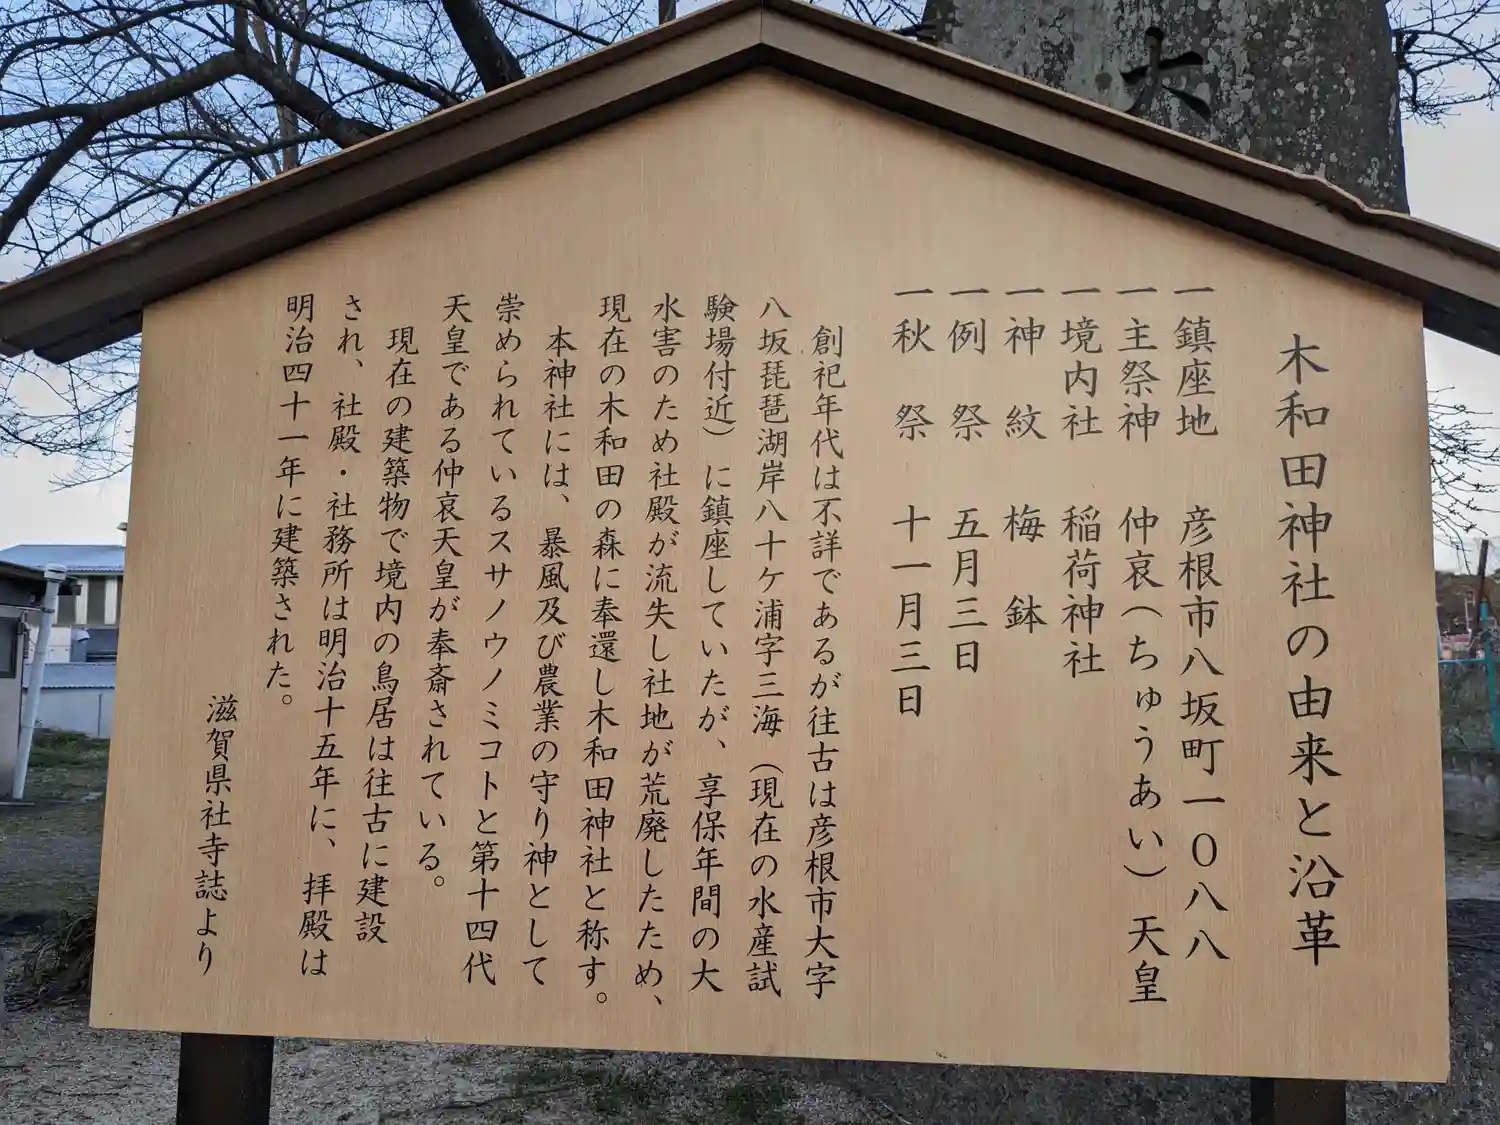 木和田神社の由来と沿革
一鎮座地 彦根市八坂町一〇八八
一主祭神 仲哀(ちゅうあい)天皇
一境内社 稲荷神社
一神紋 梅鉢
一例祭 五月三日
一秋祭 十一月三日
創祀年代は不詳であるが往古は彦根市大字
八坂琵琶湖岸八十ケ浦字三海(現在の水産試
験場付近)に鎮座していたが、享保年間の大
水害のため社殿が流失し社地が荒廃したため、
現在の木和田の森に奉還し木和田神社と称す。
本神社には、暴風及び農業の守り神として
崇められているスサノウノミコトと第十四代
天皇である仲哀天皇が奉斎されている。
現在の建築物で境内の鳥居は往古に建設
され、社殿・社務所は明治十五年に、拝殿は
明治四十一年に建築された。
滋賀県社寺誌より
大